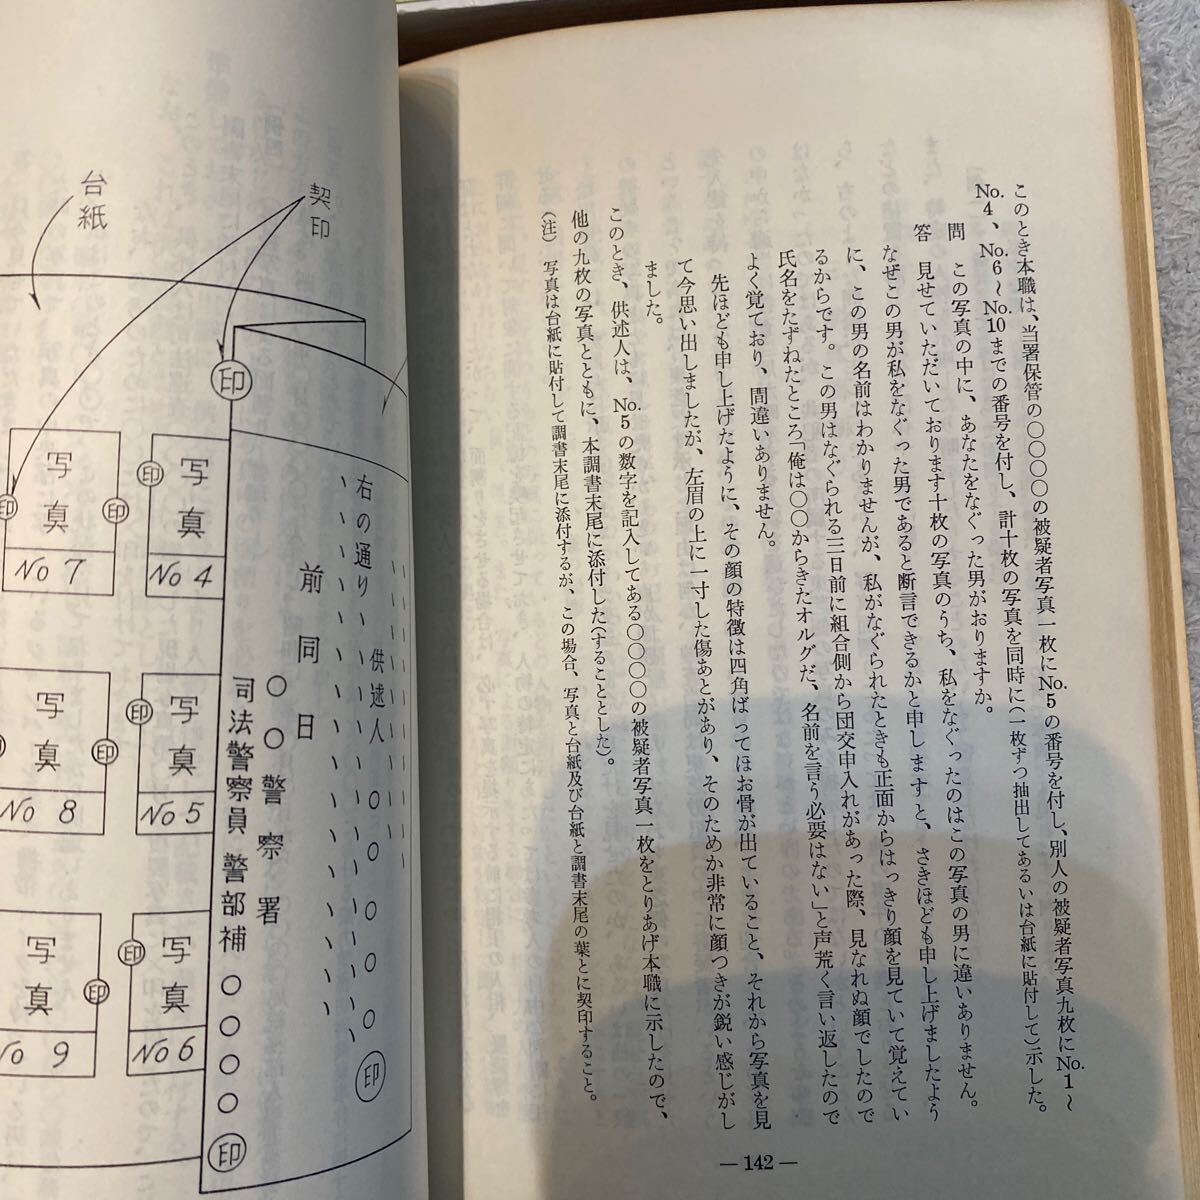 このとき本職は、当署保管の〇〇〇〇の被疑者写真一枚にNo.5の番号を付し、別人の被疑者写真九枚にNo.1～
No.4、No.6～No.10までの番号を付し、計十枚の写真を同時に(一枚ずつ抽出してあるいは台紙に貼付して)示した。
問 この写真の中に、あなたをなぐった男がおりますか。
答 見せていただいております十枚の写真のうち、私をなぐったのはこの写真の男に違いありません。
なぜこの男が私をなぐった男であると断言できるかと申しますと、さきほども申し上げましたよう
に、この男の名前はわかりませんが、私がなぐられたときも正面からはっきり顔を見ていて覚えてい
るからです。この男はなぐられる三日前に組合側から団交申入れがあった際、見なれぬ顔でしたので
氏名をたずねたところ「俺は〇〇からきたオルグだ、名前を言う必要はない」と声荒く言い返したので
よく覚ており、間違いありません。
先ほども申し上げたように、その顔の特徴は四角ばってほお骨が出ていること、それから写真を見
て今思い出しましたが、左眉の上に一寸した傷あとがあり、そのためか非常に顔つきが鋭い感じがし
ました。
このとき、供述人は、No.5の数字を記入してある〇〇〇〇の被疑者写真一枚をとりあげ本職に示したので、
他の九枚の写真とともに、本調書末尾に添付した(することとした)。
(注) 写真は台紙に貼付して調書末尾に添付するが、この場合、写真と台紙及び台紙と調書末尾の葉とに契印すること。
—142—
契印
台紙
印
右の通り
供述人 〇〇〇〇〇 印
前同日
〇〇警察署
司法警察員 警部補 〇〇〇〇 印
写真
No 4
印
写真
No 5
印
写真
No 6
印
写真
No 7
印
印
写真
No 8
印
写真
No 9
印